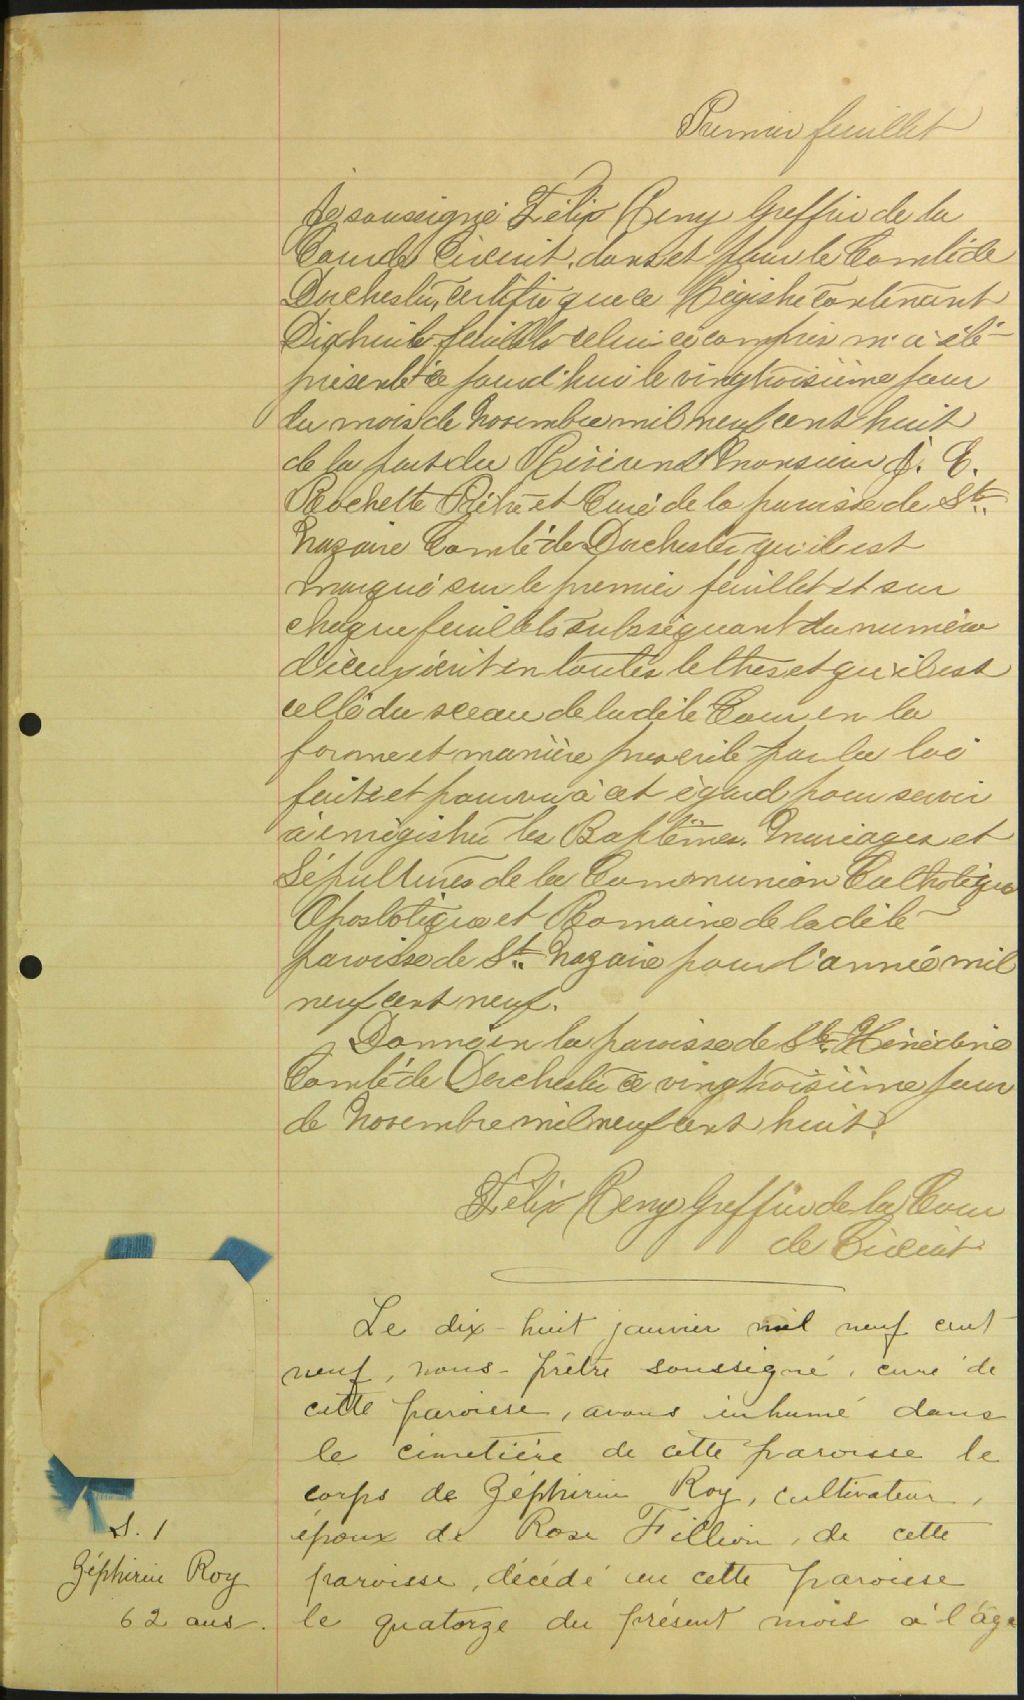 Premier feuillet
Je soussigné Félix Remy Greffier de la
Cour de Circuit, dans et pour le Comté de
Dorchester, certifie que ce Régistre contenant
Dix huit feuillets celui ci compris m'a été
présenté ce jourd'hui le vingtroisième jour
du mois de Novembre mil neuf cent huit
de la part du Révérend Monsieur J. E.
Rochette Prêtre et Curé de la paroisse de St.
Nazaire Comté de Dorchester qu'il est
marqué sur le premier feuillet et sur
chaque feuillets subséquant du numéro
d'iceux écrit en toutes lettres et qu'il est
cellé du sceau de la dite Cour en la
forme et manière prescrite par la loi
faite et pourvu à cet égard pour servir
à enrégistré les Baptêmes. Mariages et
Sépultures de la Communion Catholique
Apostolique et Romaine de la dite
paroisse de St. Nazaire pour l'année mil
neuf cent neuf.
Donné en la paroisse de Ste. Hénédine
Comté de Dorchester ce vingtroisième jour
de Novembre mil neuf cent huit.
Félix Remy Greffier de la Cour
de Circuit
Le dix-huit janvier mil neuf cent
neuf, nous-prêtre soussigné, curé de
cette paroisse, avons inhumé dans
le cimetière de cette paroisse le
corps de Zéphirin Roy, cultivateur,
époux de Rose Fillion, de cette
paroisse, décédé en cette paroisse
le quatorze du présent mois à l'âge
S. 1
Zéphirin Roy
62 ans.